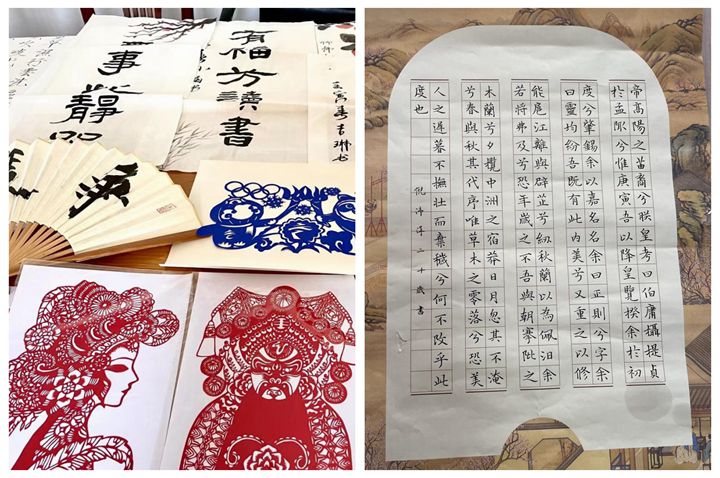 有福方讀書
事此靜坐
帝高陽之苗裔兮朕皇考曰伯庸攝提貞
於孟陬兮惟庚寅吾以降皇覽揆余於初
度兮肇錫余以嘉名名余曰正則兮字余
曰靈均紛吾既有此內美兮又重之以修
能扈江離與辟芷兮紉秋蘭以為佩汨余
若將弗及兮恐年歲之不吾與朝搴阰之
木蘭兮夕攬中洲之宿莽日月忽其不淹
兮春與秋其代序唯草木之零落兮恐美
人之遲暮不撫壯而棄穢兮何不改乎此
度也